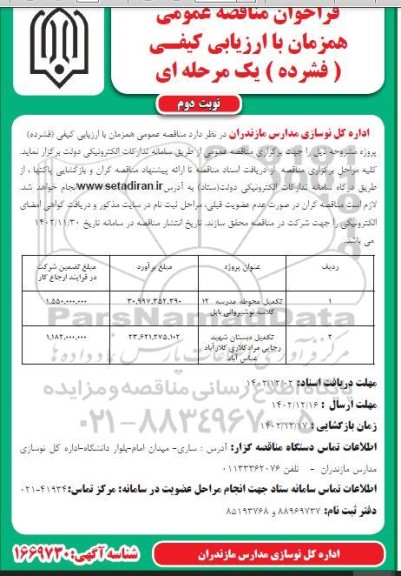 فراخوان مناقصه عمومی
همزمان با ارزیابی کیفی
( فشرده ) یک مرحله ای
نوبت دوم
اداره کل نوسازی مدارس مازندران در نظر دارد مناقصه عمومی همزمان با ارزیابی کیفی (فشرده)
پروژه مشروحه ذیل را جهت برگزاری مناقصه عمومی از طریق سامانه تدارکات الکترونیکی دولت برگزار نماید.
کلیه مراحل برگزاری مناقصه از دریافت اسناد مناقصه تا ارائه پیشنهاد مناقصه گران و بازگشایی پاکتها ، از
طریق درگاه سامانه تدارکات الکترونیکی دولت(ستاد) به آدرس www.setadiran.ir انجام خواهد شد.
لازم است مناقصه گران در صورت عدم عضویت قبلی، مراحل ثبت نام در سایت مذکور و دریافت گواهی امضای
الکترونیکی را جهت شرکت در مناقصه محقق سازند. تاریخ انتشار مناقصه در سامانه تاریخ ۱۴۰۲/۱۱/۳۰
می باشد.
ردیف عنوان پروژه مبلغ برآورد مبلغ تضمین شرکت
در فرایند ارجاع کار
۱ تکمیل محوطه مدرسه ۱۲ ۳۰،۹۹۷،۳۵۲،۳۹۰ ۱،۵۵۰،۰۰۰،۰۰۰
کلاسه نوشیروانی بابل
۲ تکمیل دبستان شهید ۲۳،۶۲۱،۲۷۵،۱۰۲ ۱،۱۸۲،۰۰۰،۰۰۰
رجایی مرادکلاری کلارآباد
عباس آباد
مهلت دریافت اسناد: ۱۴۰۲/۱۲/۰۲
مهلت ارسال : ۱۴۰۲/۱۲/۱۶
زمان بازگشایی : ۱۴۰۲/۱۲/۱۷
اطلاعات تماس دستگاه مناقصه گزار: آدرس : ساری- میدان امام-بلوار دانشگاه-اداره کل نوسازی
مدارس مازندران - تلفن ۰۱۱۳۳۳۶۲۰۷۶
اطلاعات تماس سامانه ستاد جهت انجام مراحل عضویت در سامانه: مرکز تماس: ۴۱۹۳۴-۰۲۱
دفتر ثبت نام: ۸۸۹۶۹۷۳۷ و ۸۵۱۹۳۷۶۸
اداره کل نوسازی مدارس مازندران
شناسه آگهی: ۱۶۶۹۷۳۰
ParsNamadData
پایگاه اطلاع رسانی مناقصه و مزایده
۰۲۱-۸۸۳۴۹۶۷۰